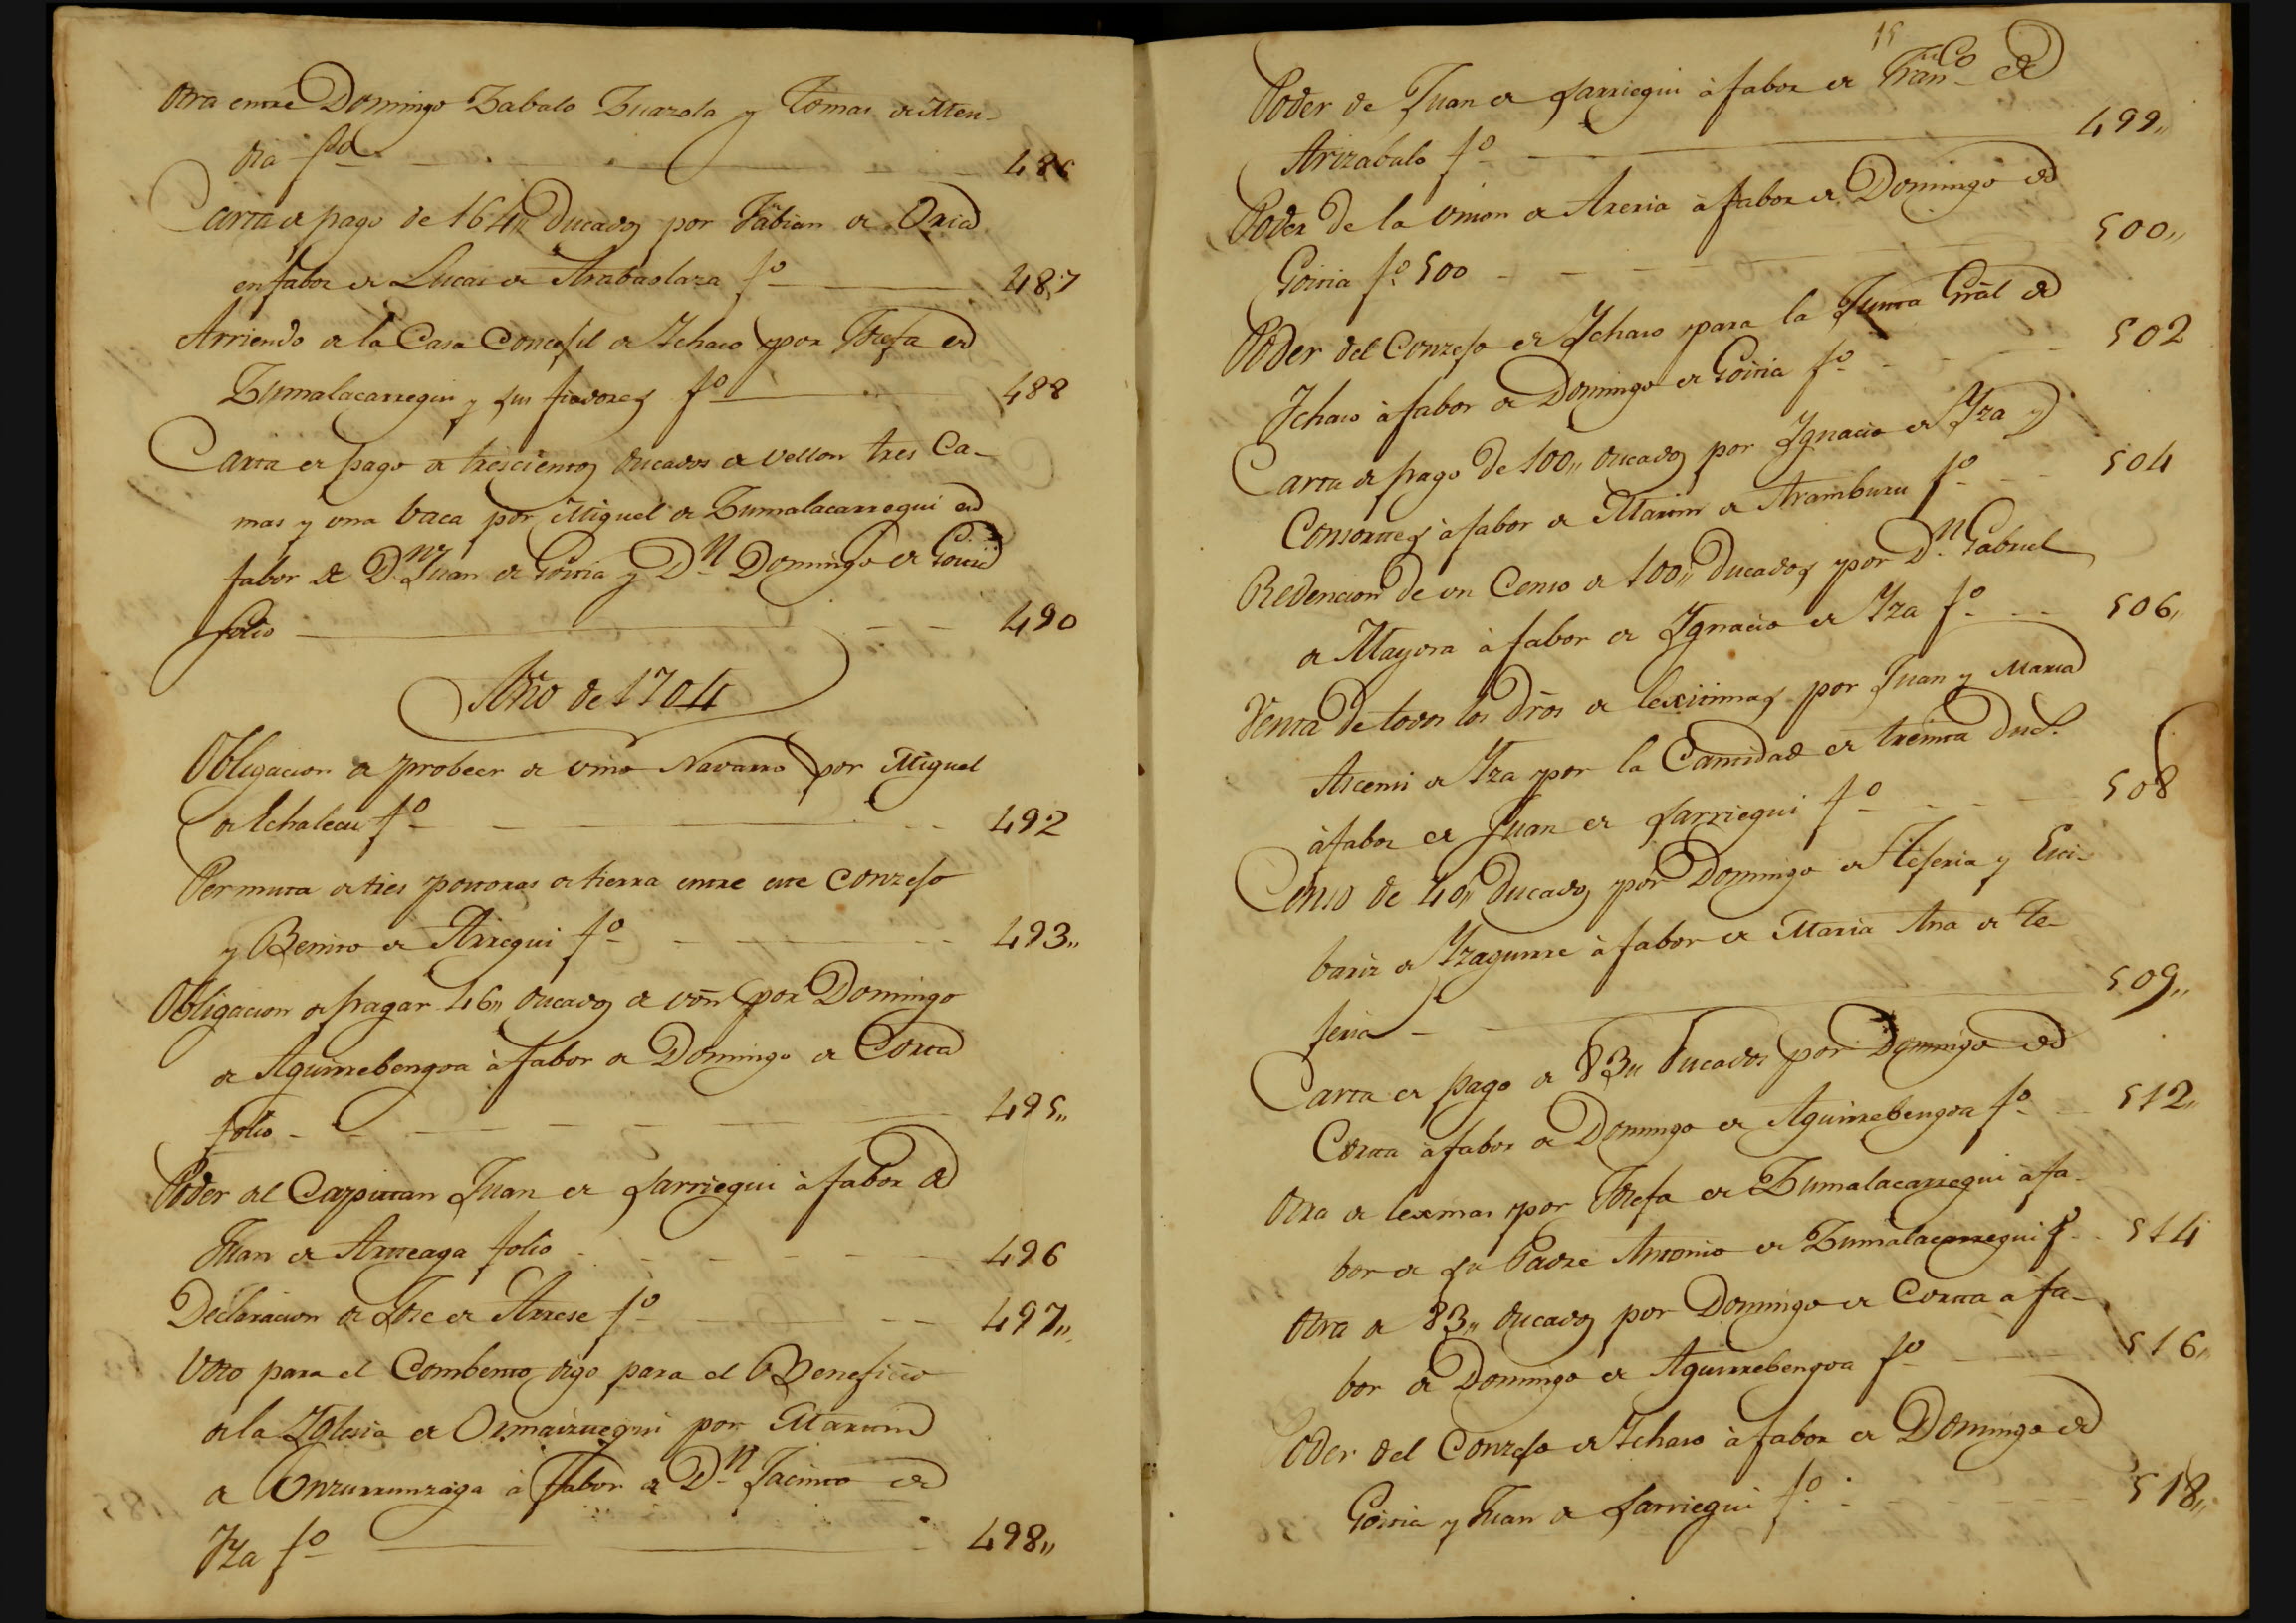 Otra entre Domingo Zabalo Zuazola y Tomas de Men-
dia fo 486
Carta de pago de 164,, Ducados por Fabian de Oria
en fabor de Lucas de Arabaolaza fo 487
Arriendo de la Casa Concejil de Ychaso por Josefa de
Zumalacarregui y sus fiadores fo 488
Carta de pago de trescientos ducados de vellon tres Ca-
mas y una baca por Miguel de Zumalacarregui en
fabor de Dn Juan de Goiria y Dn Domingo de Goiria
folio 490
Año de 1704
Obligacion de probeer de vino Navarro por Miguel
de Echalecu fo 492
Permuta de tres posturas de tierra entre este Conzejo
y Benito de Arregui fo 493,,
Obligacion de pagar 46,, ducados de von por Domingo
de Aguirrebengoa à fabor de Domingo de Corta
folio 495,,
Poder del Capitan Juan de Sarriegui à fabor de
Juan de Arteaga folio 496
Declaracion de Jose de Arrese fo 497,,
Voto para el Combento, digo para el Beneficio
de la Yglesia de Ormaiztegui por Martin
de Unzurrunzaga à fabor de Dn Jacinto de
Yza fo 498,,
15
Poder de Juan de Sarriegui à fabor de Franco de
Arizabalo fo 499,,
Poder de la Union de Areria à fabor de Domingo de
Goiria fo 500 500,,
Poder del Conzejo de Ychaso para la Junta Gral de
Ychaso à fabor de Domingo de Goiria fo 502
Carta de pago de 100,, ducados por Ygnacio de Yza y
Consortes à fabor de Martin de Aramburu fo 504
Redencion de un Censo de 100,, Ducados por Dn Gabriel
de Mayora à fabor de Ygnacio de Yza fo 506,,
Venta de todos los dros de lexitimas por Juan y Maria
Ascensi de Yza por la Cantidad de treinta Ducs.
à fabor de Juan de Sarriegui fo 508
Censo de 40,, Ducados por Domingo de Tejeria y Esti-
bariz de Yzaguirre à fabor de Maria Ana de Te-
jeria 509,,
Carta de pago de 83,, Ducados por Domingo de
Corta à fabor de Domingo de Aguirrebengoa fo 512,,
Otra de lexmas por Josefa de Zumalacarregui à fa-
bor de su Padre Antonio de Zumalacarregui fo 514
Otra de 83,, ducados por Domingo de Corta à fa-
bor de Domingo de Aguirrebengoa fo 516,,
Poder del Conzejo de Ychaso à fabor de Domingo de
Goiria y Juan de Sarriegui fo 518,,